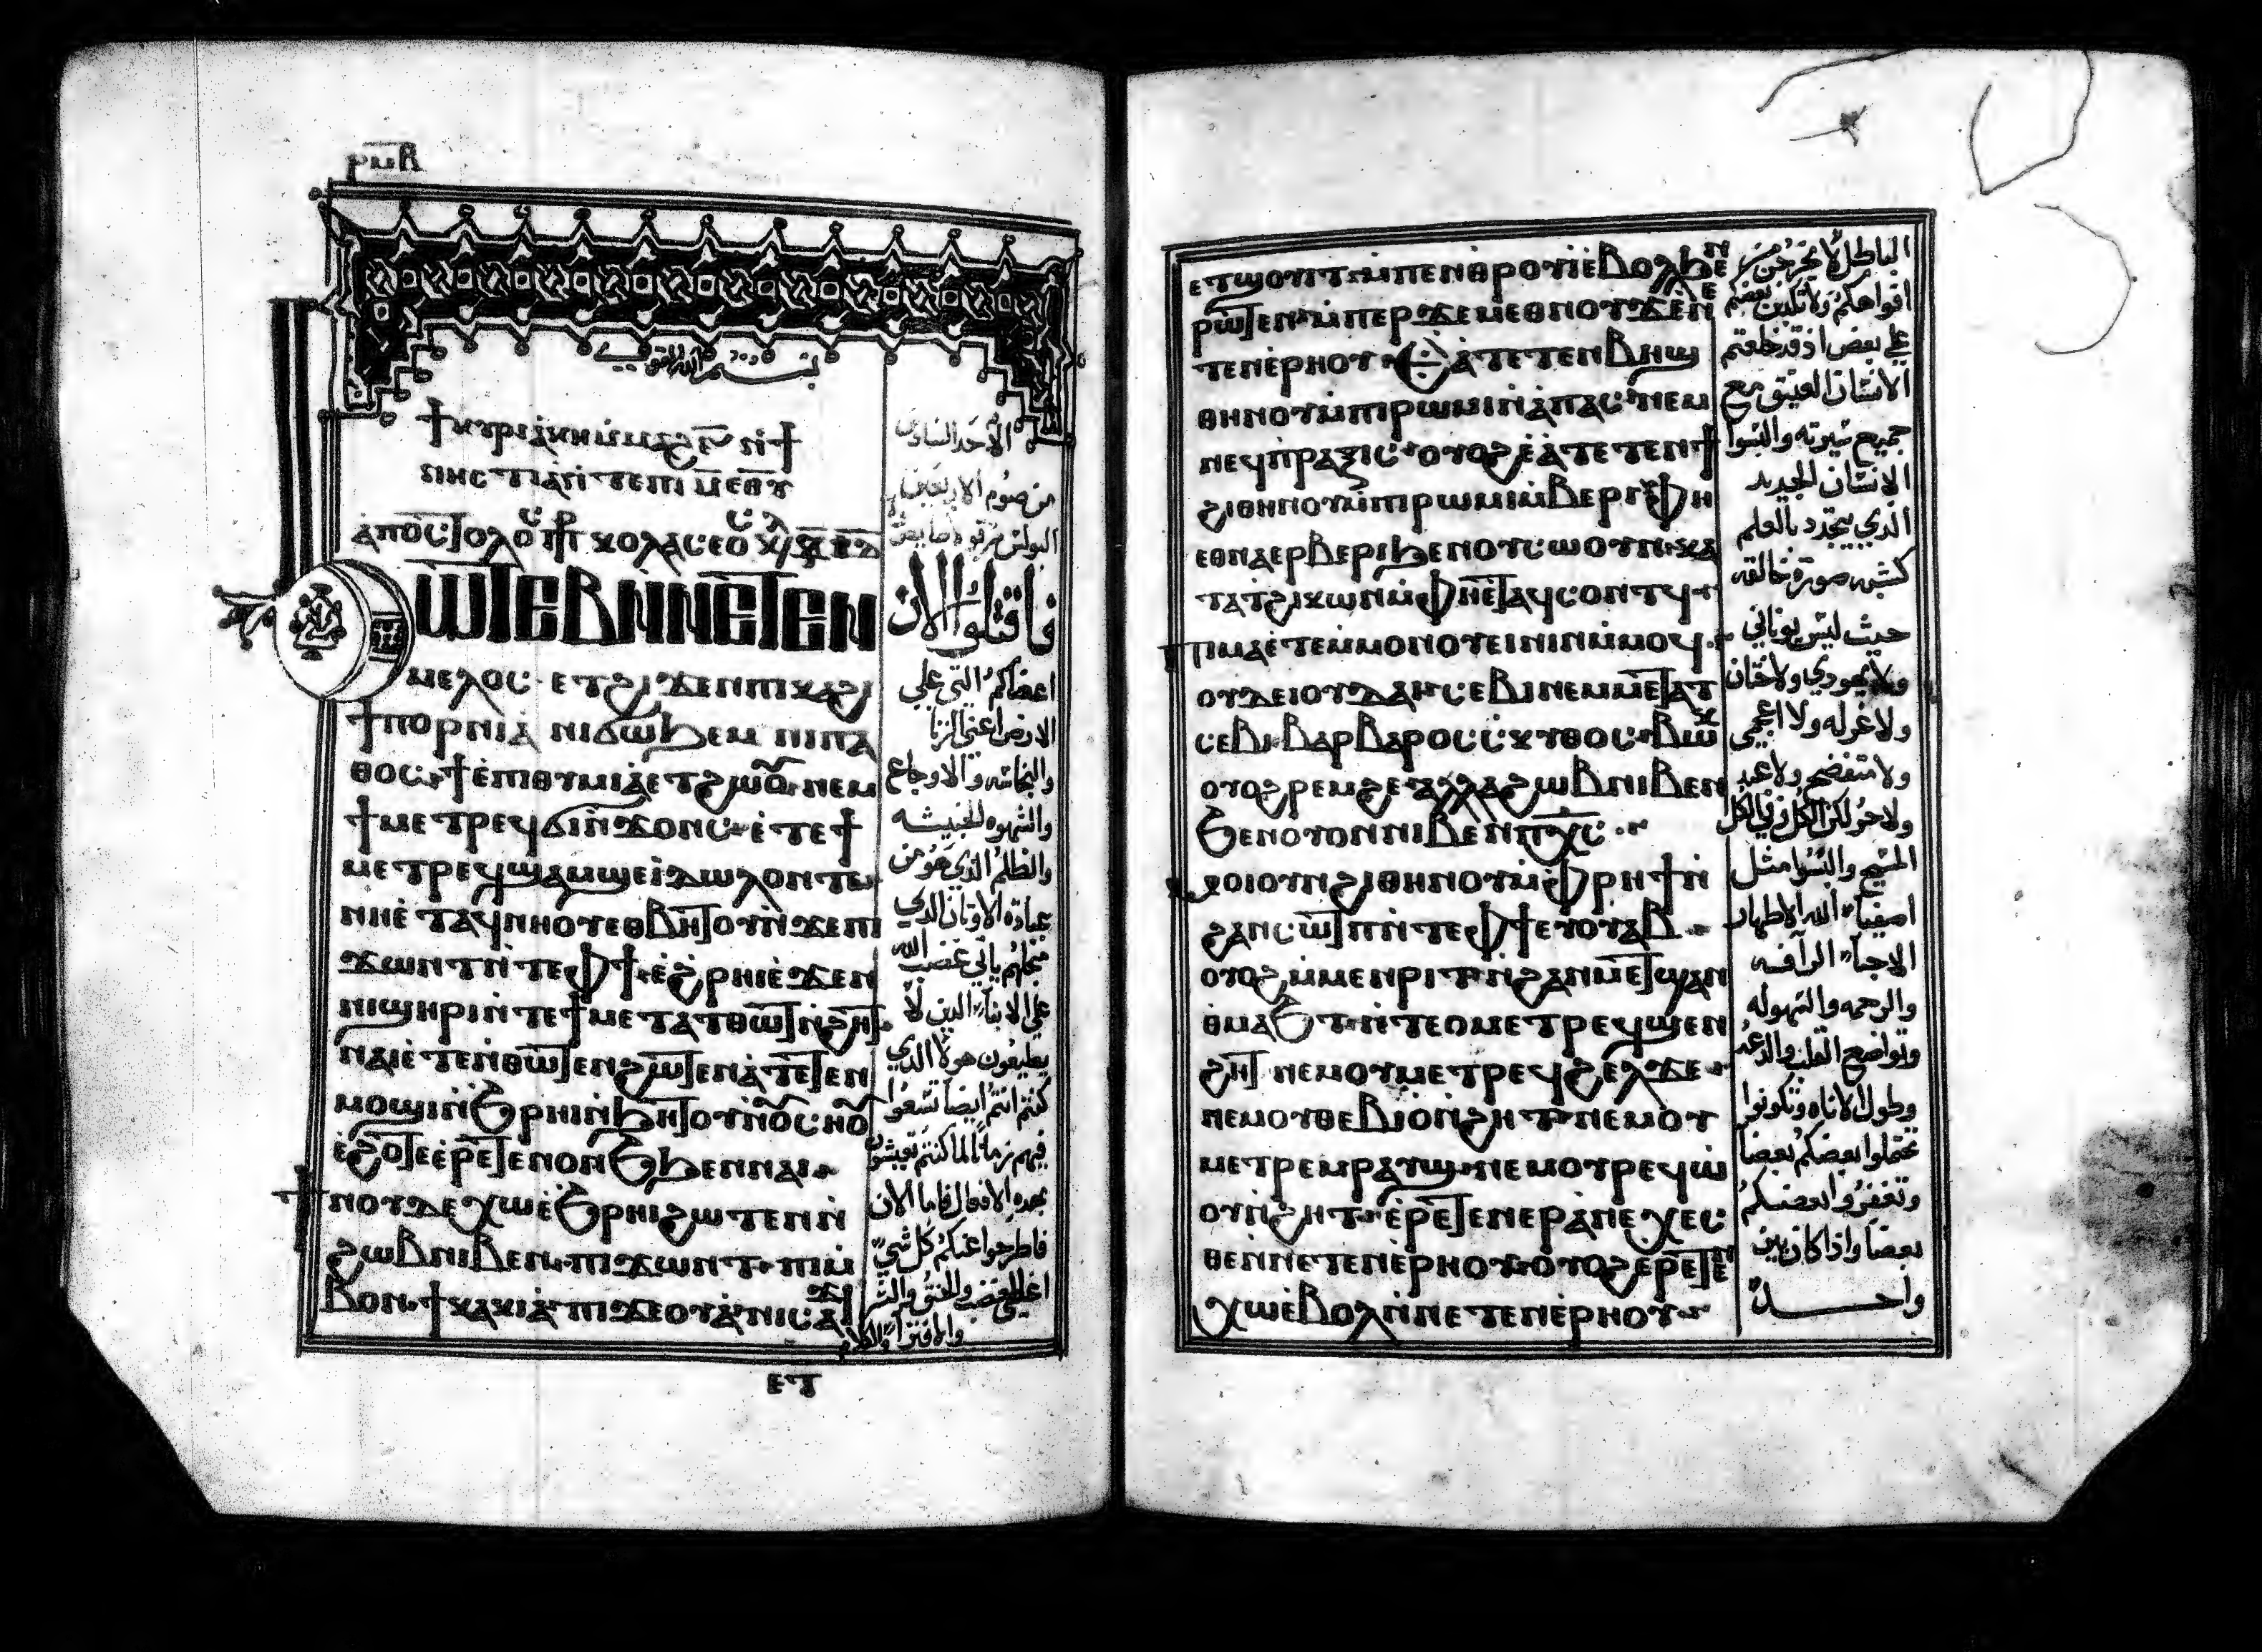 ⲣⲙⲃ
بسم الله القوي
ϯⲕⲩⲣⲓⲁⲕⲏ ⲙ̀ⲙⲁϩ ⲋ̅ ⲛ̀ϯ
ⲛⲏⲥⲧⲓⲁ ⲛ̀ⲧⲉ ⲡⲓ ⲙ̅ ⲉⲑⲩ
ϧⲱⲧⲉⲃ ⲛ̀ⲛⲉⲧⲉⲛ
ⲙⲉⲗⲟⲥ ⲉⲧϩⲓϫⲉⲛ ⲡⲓⲕⲁϩⲓ
ϯⲡⲟⲣⲛⲓⲁ ⲛⲓϭⲱϧⲉⲙ ⲛⲓⲡⲁ
ⲑⲟⲥ ϯⲉ̀ⲡⲓⲑⲩⲙⲓⲁ ⲉⲧϩⲱⲟⲩ ⲛⲉⲙ
ϯⲙⲉⲧⲣⲉϥϭⲓⲛ̀ϫⲟⲛⲥ ⲉ̀ⲧⲉ ϯ
ⲙⲉⲧⲣⲉϥϣⲁⲙϣⲉⲓⲇⲱⲗⲟⲛ ⲧⲉ
ⲛⲏⲉ̀ⲧⲁϥⲛⲏⲟⲩ ⲉⲑⲃⲏⲧⲟⲩ ⲛ̀ϫⲉ ⲡⲓ
ϫⲱⲛⲧ ⲛ̀ⲧⲉ ⲫϯ ⲉ̀ϩⲣⲏⲓ ⲉ̀ϫⲉⲛ
ⲛⲓϣⲏⲣⲓ ⲛ̀ⲧⲉ ϯⲙⲉⲧⲁⲧⲑⲱⲧ ⲛ̀ϩⲏⲧ
ⲛⲁⲓ ⲉ̀ⲧⲉ ⲛ̀ⲑⲱⲧⲉⲛ ϩⲱⲧⲉⲛ ⲁ̀ⲧⲉⲧⲉⲛ
ⲙⲟϣⲓ ⲛ̀ϧⲣⲏⲓ ⲛ̀ϧⲏⲧⲟⲩ ⲛ̀ⲟⲩⲥⲏⲟⲩ
ⲉ̀ϩⲟⲧⲉ ⲉ̀ⲣⲉⲧⲉⲛⲟⲛϧ ϧⲉⲛ ⲛⲁⲓ
ϯⲛⲟⲩ ⲇⲉ ⲭⲱ ⲉ̀ϧⲣⲏⲓ ϩⲱⲧⲉⲛ ⲛ̀
ϩⲱⲃ ⲛⲓⲃⲉⲛ ⲡⲓϫⲱⲛⲧ ⲡⲓⲙ̀
ⲃⲟⲛ ϯⲕⲁⲕⲓⲁ ⲡⲓϫⲉⲟⲩⲁ̀ ⲛⲓⲥⲁϫⲓ
ⲉⲧ
الاحد السادس
من صوم الاربعين
فاقتلوا الان
اعضاكم التي علي
الارض اعني الزنا
والنجاسه والاوجاع
والشهوه الخبيثه
والظلم الذي هو من
عبادة الاوثان الذي
نجلهم ياتي غضب الله
علي الابناء الدين لا
يطيعون هولا الذي
كنتم انتم ايضا تسعوا
فيهم زمانا لما كنتم تعيشون
بهده الافعال فاما الان
فاطرحوا عنكم كل شي
والافترا والكلام
ⲉⲧϣⲟⲩⲓⲧ ⲙ̀ⲡⲉⲛⲑⲣⲟⲩⲓ̀ ⲉ̀ⲃⲟⲗϧⲉⲛ
ⲣⲱⲧⲉⲛ ⲙ̀ⲡⲉⲣϫⲉ ⲙⲉⲑⲛⲟⲩϫ ⲉ̀ⲛⲉ
ⲧⲉⲛⲉ̀ⲣⲏⲟⲩ ⲉ̀ⲁ̀ⲧⲉⲧⲉⲛⲃⲏϣ
ⲑⲏⲛⲟⲩ ⲙ̀ⲡⲓⲣⲱⲙⲓ ⲛ̀ⲁ̀ⲡⲁⲥ ⲛⲉⲙ
ⲛⲉϥⲡⲣⲁⲝⲓⲥ ⲟⲩⲟϩ ⲉ̀ⲁ̀ⲧⲉⲧⲉⲛϯ
ϩⲓⲑⲏⲛⲟⲩ ⲙ̀ⲡⲓⲣⲱⲙⲓ ⲙ̀ⲃⲉⲣⲓ ⲫⲏ
ⲉⲑⲛⲁⲉⲣⲃⲉⲣⲓ ϧⲉⲛ ⲟⲩⲥⲱⲟⲩⲛ ⲕⲁ
ⲧⲁ ⲧϩⲓⲕⲱⲛ ⲙ̀ⲫⲏⲉ̀ⲧⲁϥⲥⲟⲛⲧϥ
ⲡⲓⲙⲁ ⲉ̀ⲧⲉ ⲙ̀ⲙⲟⲛ ⲟⲩⲉⲓⲛⲓⲛ ⲙ̀ⲙⲟϥ
ⲟⲩⲇⲉ ⲓⲟⲩⲇⲁⲓ ⲥⲉⲃⲓ ⲛⲉⲙ ⲙⲉⲧⲁⲧ
ⲥⲉⲃⲓ ⲃⲁⲣⲃⲁⲣⲟⲥ ⲥ̀ⲕⲩⲑⲟⲥ ⲃⲱⲕ
ⲟⲩⲟϩ ⲣⲉⲙϩⲉ ⲁⲗⲗⲁ ϩⲱⲃ ⲛⲓⲃⲉⲛ
ϧⲉⲛ ⲟⲩⲟⲛ ⲛⲓⲃⲉⲛ ⲡⲭ̅ⲥ̅
ϫⲟⲓ ⲟⲩⲛ ϩⲓⲑⲏⲛⲟⲩ ⲙ̀ⲫⲣⲏϯ ⲛ̀
ϩⲁⲛⲥⲱⲧⲡ ⲛ̀ⲧⲉ ⲫϯ ⲉⲩⲟⲩⲁⲃ
ⲟⲩⲟϩ ⲙ̀ⲙⲉⲛⲣⲓⲧ ⲛ̀ϩⲁⲛⲙⲉⲧϣⲁⲛ
ⲑⲙⲁϧⲧ ⲛ̀ⲧⲉ ⲟⲩⲙⲉⲧⲣⲉϥϣⲉⲛ
ϩⲏⲧ ⲛⲉⲙ ⲟⲩⲙⲉⲧⲣⲉϥϩⲉⲗϫⲉ
ⲛⲉⲙ ⲟⲩⲑⲉⲃⲓⲟ ⲛ̀ϩⲏⲧ ⲛⲉⲙ ⲟⲩ
ⲙⲉⲧⲣⲉⲙⲣⲁⲩϣ ⲛⲉⲙ ⲟⲩⲣⲉϥⲱ
ⲟⲩ ⲛ̀ϩⲏⲧ ⲉ̀ⲣⲉⲧⲉⲛⲉⲣⲁ̀ⲛⲉⲭⲉⲥ
ⲑⲉ ⲛ̀ⲛⲉⲧⲉⲛⲉ̀ⲣⲏⲟⲩ ⲟⲩⲟϩ ⲉⲣⲉⲧⲉⲛ
ⲭⲱ ⲉ̀ⲃⲟⲗ ⲛ̀ⲛⲉⲧⲉⲛⲉ̀ⲣⲏⲟⲩ
الباطل لا يخرجن من
افواهكم ولا تكذبن بعضكم
علي بعض اذ قد خلعتم
الانسان العتيق مع
جميع سيرته والبسوا
الانسان الجديد
الذي يتجدد بالعلم
كشبه صورة خالقه
حيث ليس يوناني
ولا يهودي ولا ختان
ولا غرله ولا اعجمي
ولا حر لكن الكل وفي الكل
المسيح والبسوا مثل
اصفياء الله الاطهار
الاحباء الرافه
والرحمه والسهوله
وتواضع القلب والدعه
وطول الاناه وتكونوا
تحتملوا بعضكم بعضا
وتغفروا بعضكم
بعضا واذا كان بين
واحــــدة